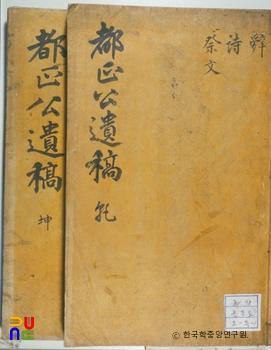 辭
詩
祭文
都正公遺稿 乾
都正公遺稿 坤
© 한국학중앙연구원